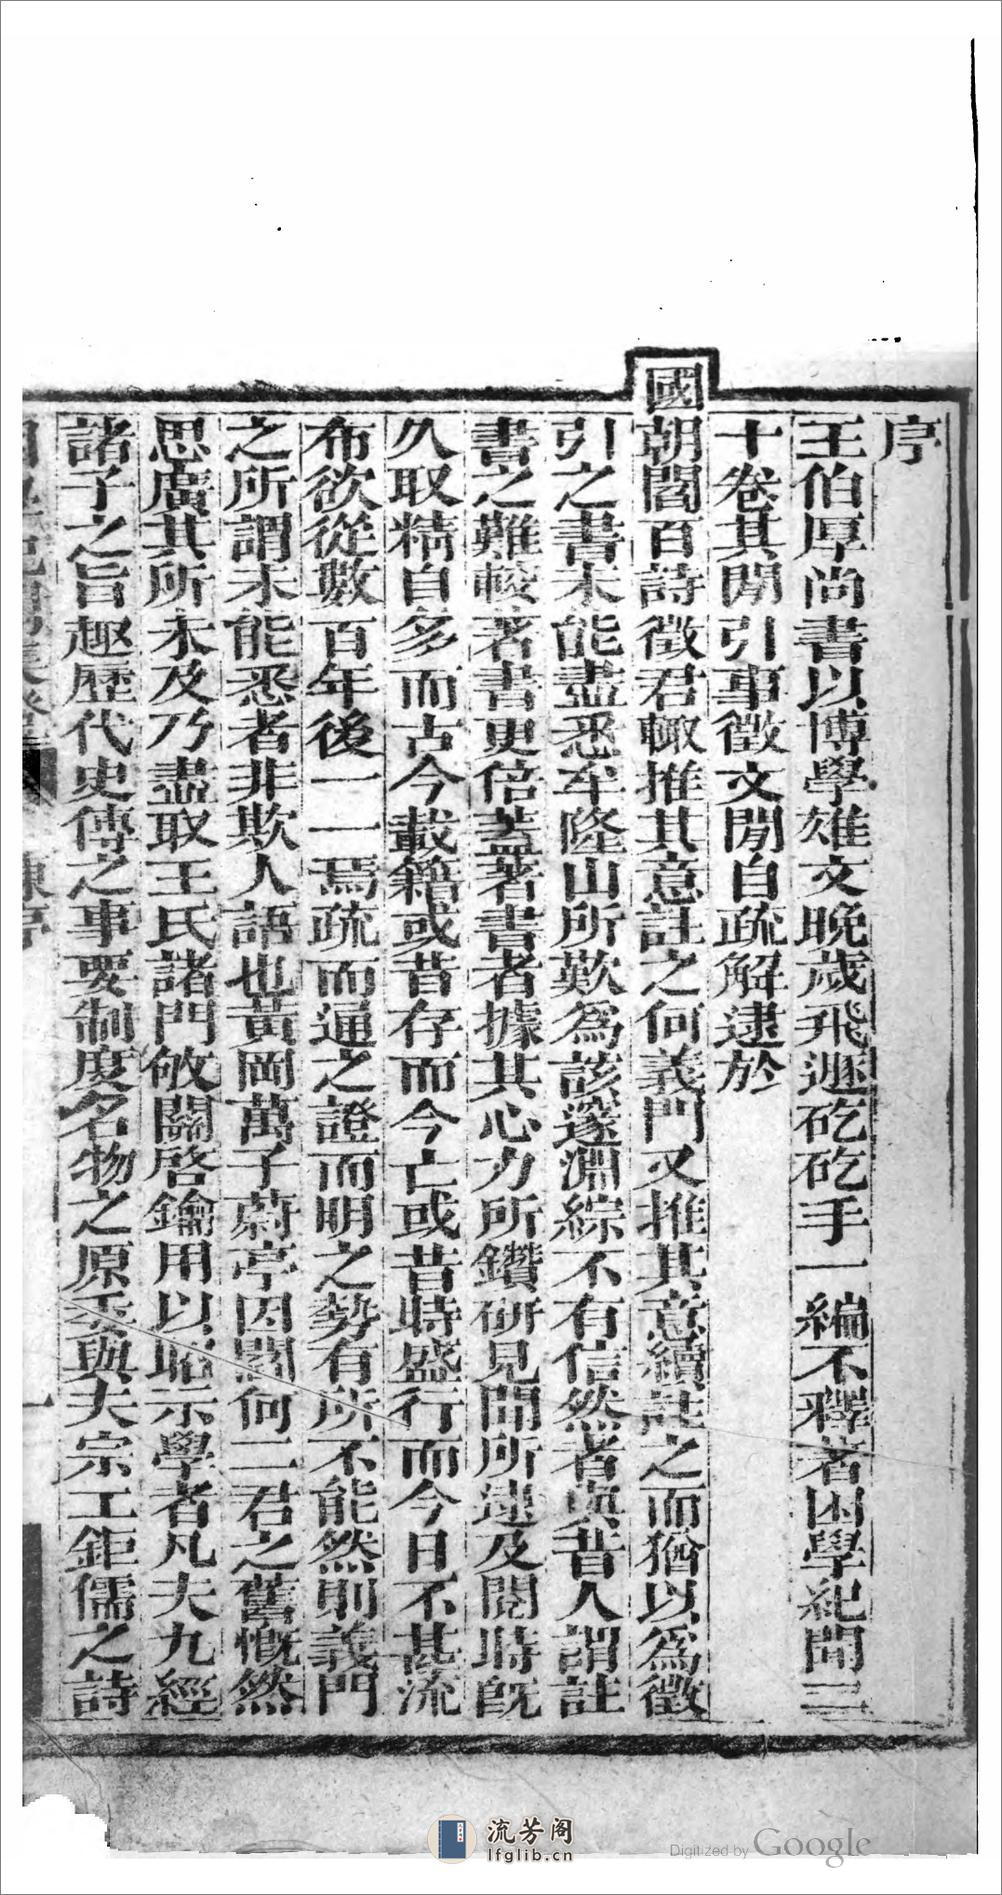 序
王伯厚尚書以博學雄文晚歲飛遯矻矻手一編不釋著困學紀聞二
十卷其閒引事徵文閒自疏解逮於
國朝閻百詩徵君輙推其意註之何義門又推其意續註之而猶以爲徵
引之書未能盡悉牟隆山所歎爲該邃淵綜不有信然者與昔人謂註
書之難較著書更倍蓋著書者據其心力所鑽研見聞所逮及閱時旣
久取精自多而古今載籍或昔存而今亡或昔時盛行而今日不甚流
布欲從數百年後一一焉疏而通之證而明之勢有所不能然則義門
之所謂未能悉者非欺人語也黃岡萬子蔚亭因閻何二君之舊慨然
思廣其所未及乃盡取王氏諸門攸關啓鑰用以昭示學者凡夫九經
諸子之旨趣歷代史傳之事要制度名物之原委與夫宗工鉅儒之詩
陳序
一
流芳阁
lfglib.cn
Digitized by Google